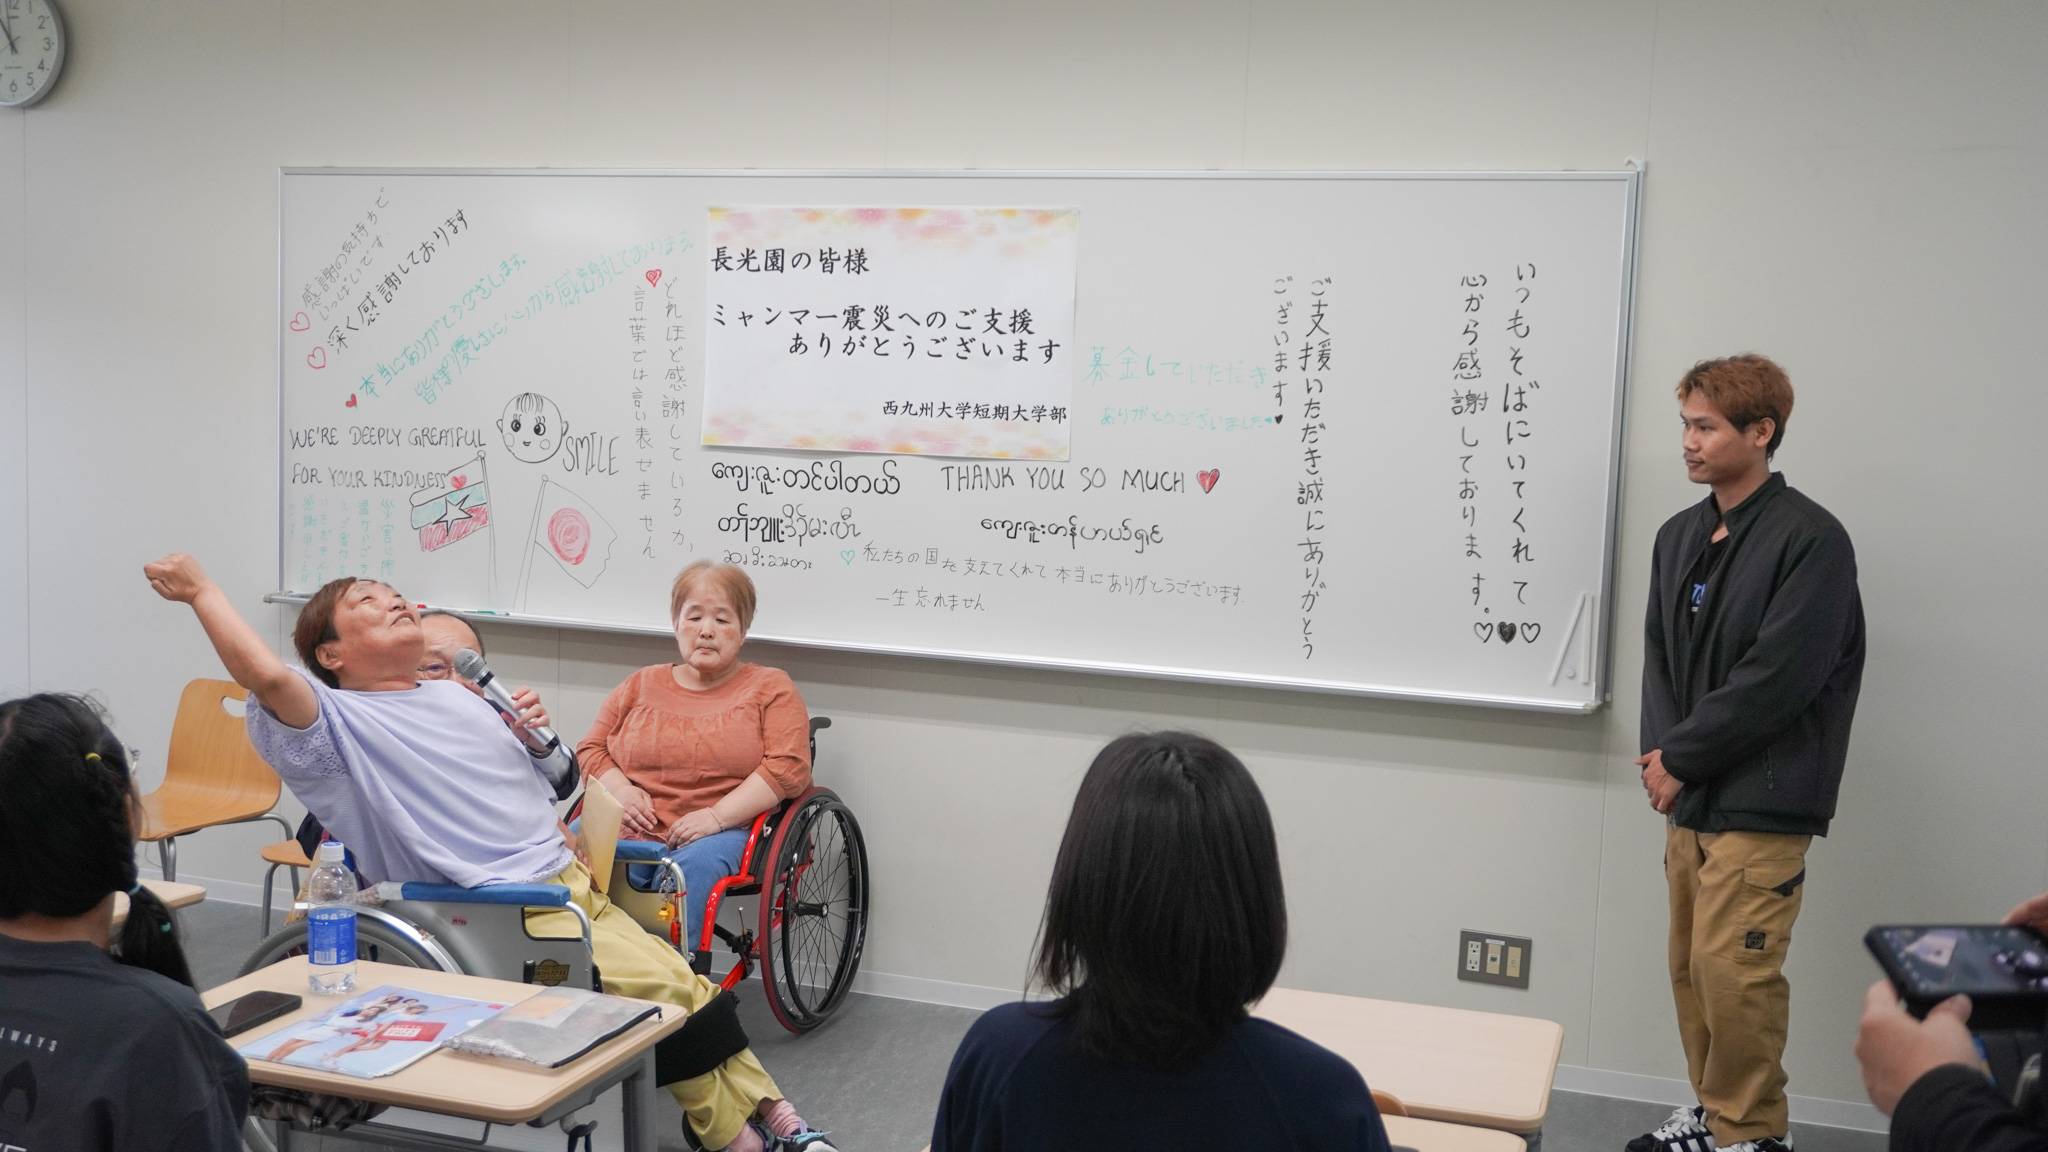 感謝の気持ちで
いっぱいです
深く感謝しております
本当にありがとうございます。
皆様の優しさに心から感謝しております
WE'RE DEEPLY GREATFUL
FOR YOUR KINDNESS
SMILE
どれほど感謝しているか、
言葉では言い表せません
長光園の皆様
ミャンマー震災へのご支援
ありがとうございます
西九州大学短期大学部
ကျေးဇူးတင်ပါတယ်
THANK YOU SO MUCH
ကျေးဇူးတန်ဟယ်ရှင်
私たちの国を支えてくれて本当にありがとうございます。
一生忘れません
募金していただき
ありがとうございました
ご支援いただき誠にありがとう
ございます
いつもそばにいてくれて
心から感謝しております。
LWAYS